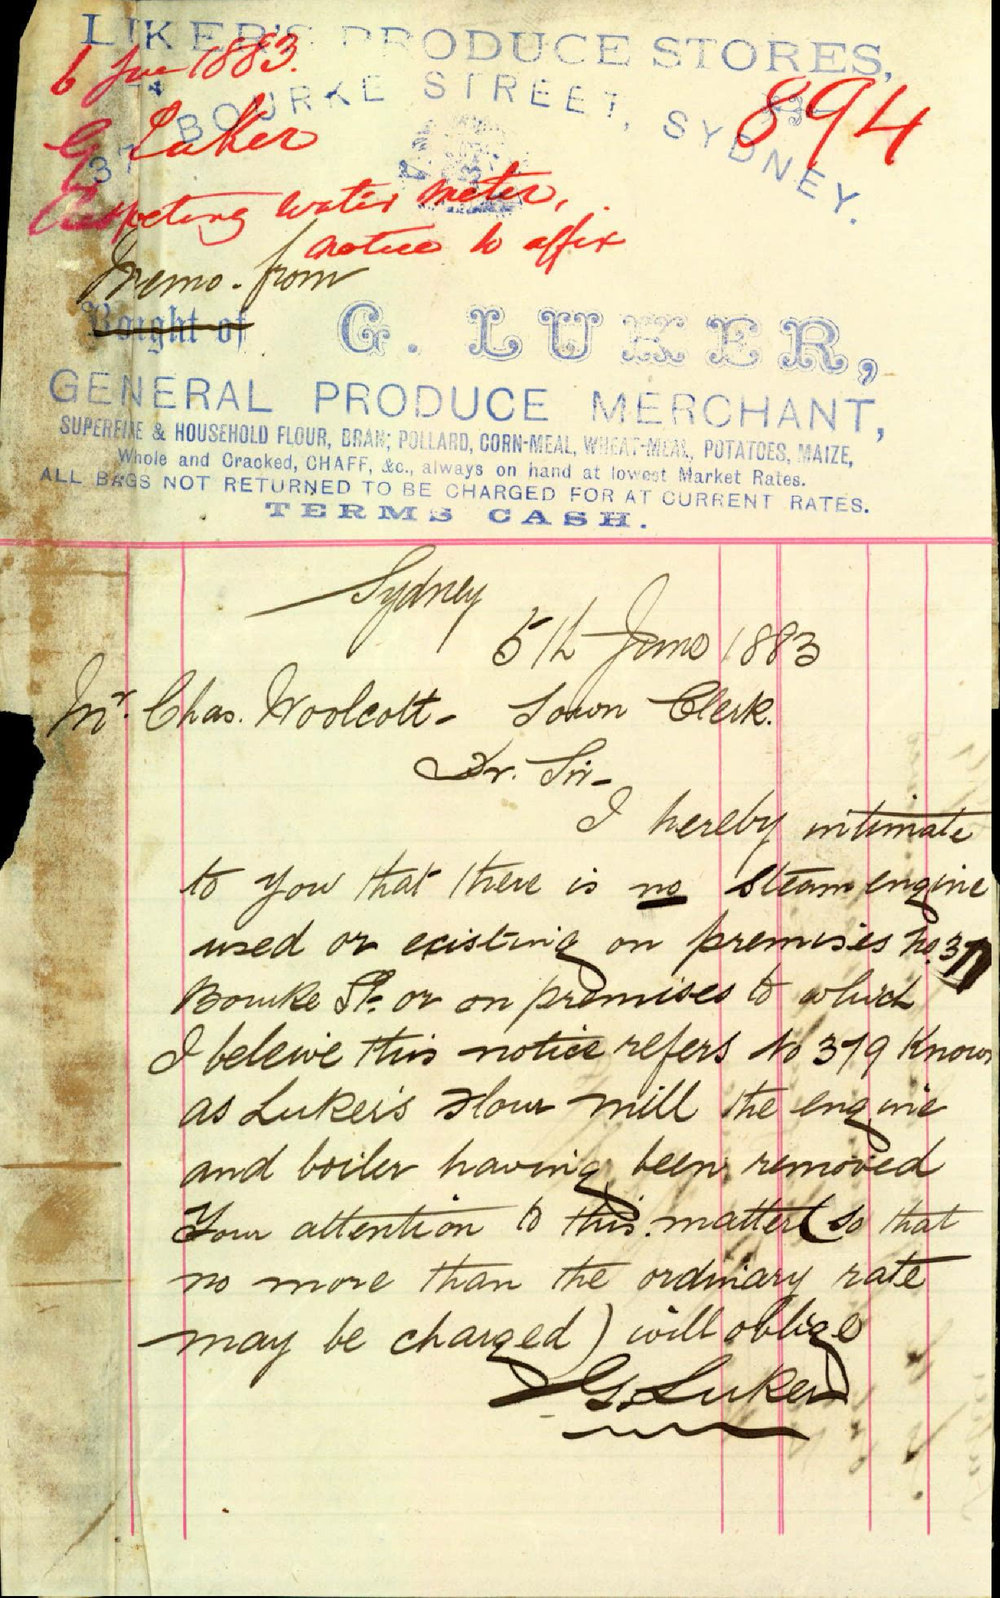 LUKER'S PRODUCE STORES,
BOURKE STREET, SYDNEY.
6 June 1883.
894
G Luker
Respecting water meter,
notice to affix
Memo. from
Bought of G. LUKER,
GENERAL PRODUCE MERCHANT,
SUPERFINE & HOUSEHOLD FLOUR, BRAN; POLLARD, CORN-MEAL, WHEAT-MEAL, POTATOES, MAIZE,
Whole and Cracked, CHAFF, &c., always on hand at lowest Market Rates.
ALL BAGS NOT RETURNED TO BE CHARGED FOR AT CURRENT RATES.
TERMS CASH.
Sydney
5th June 1883
Mr. Chas. Woolcott - Town Clerk.
Dr. Sir -
I hereby intimate
to you that there is no steam engine
used or existing on premises No.
Bourke St. or on premises to which
I beleive this notice refers No 379 Known
as Luker's Flour mill the engine
and boiler having been removed
Your attention to this matter (so that
no more than the ordinary rate
may be charged) will oblige
G. Luker